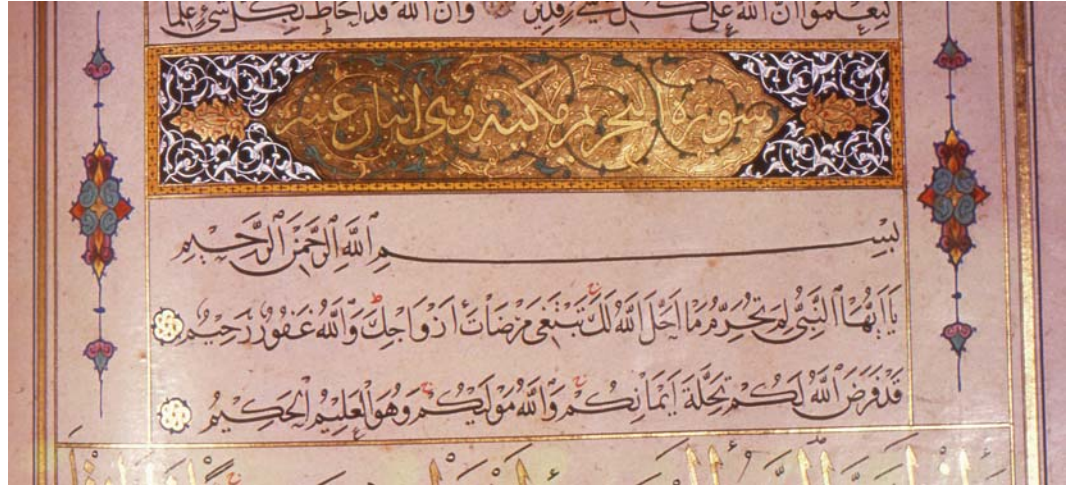 لتعلموا ان الله على كل شئ قدير وان الله قد احاط بكل شئ علما
سورة التحريم مكية وهى اثنان عشر
بِسْمِ ٱللَّهِ ٱلرَّحْمَٰنِ ٱلرَّحِيمِ
يَا اَيُّهَا النَّبِىُّ لِمَ تُحَرِّمُ مَا اَحَلَّ اللَّهُ لَكَ تَبْتَغِى مَرْضَاتَ اَزْوَاجِكَ وَاللَّهُ غَفُورٌ رَحِيمٌ
قَدْ فَرَضَ اللَّهُ لَكُمْ تَحِلَّةَ اَيْمَانِكُمْ وَاللَّهُ مَوْلَيكُمْ وَهُوَ الْعَلِيمُ الْحَكِيمُ